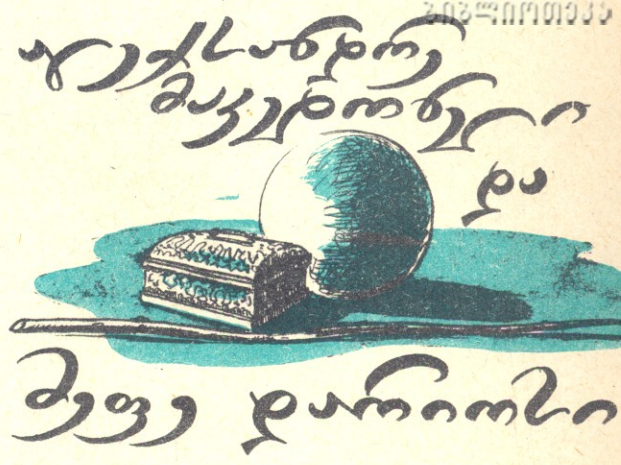 ალექსანდრე
მაკედონელი
და
მეფე დარიოსი